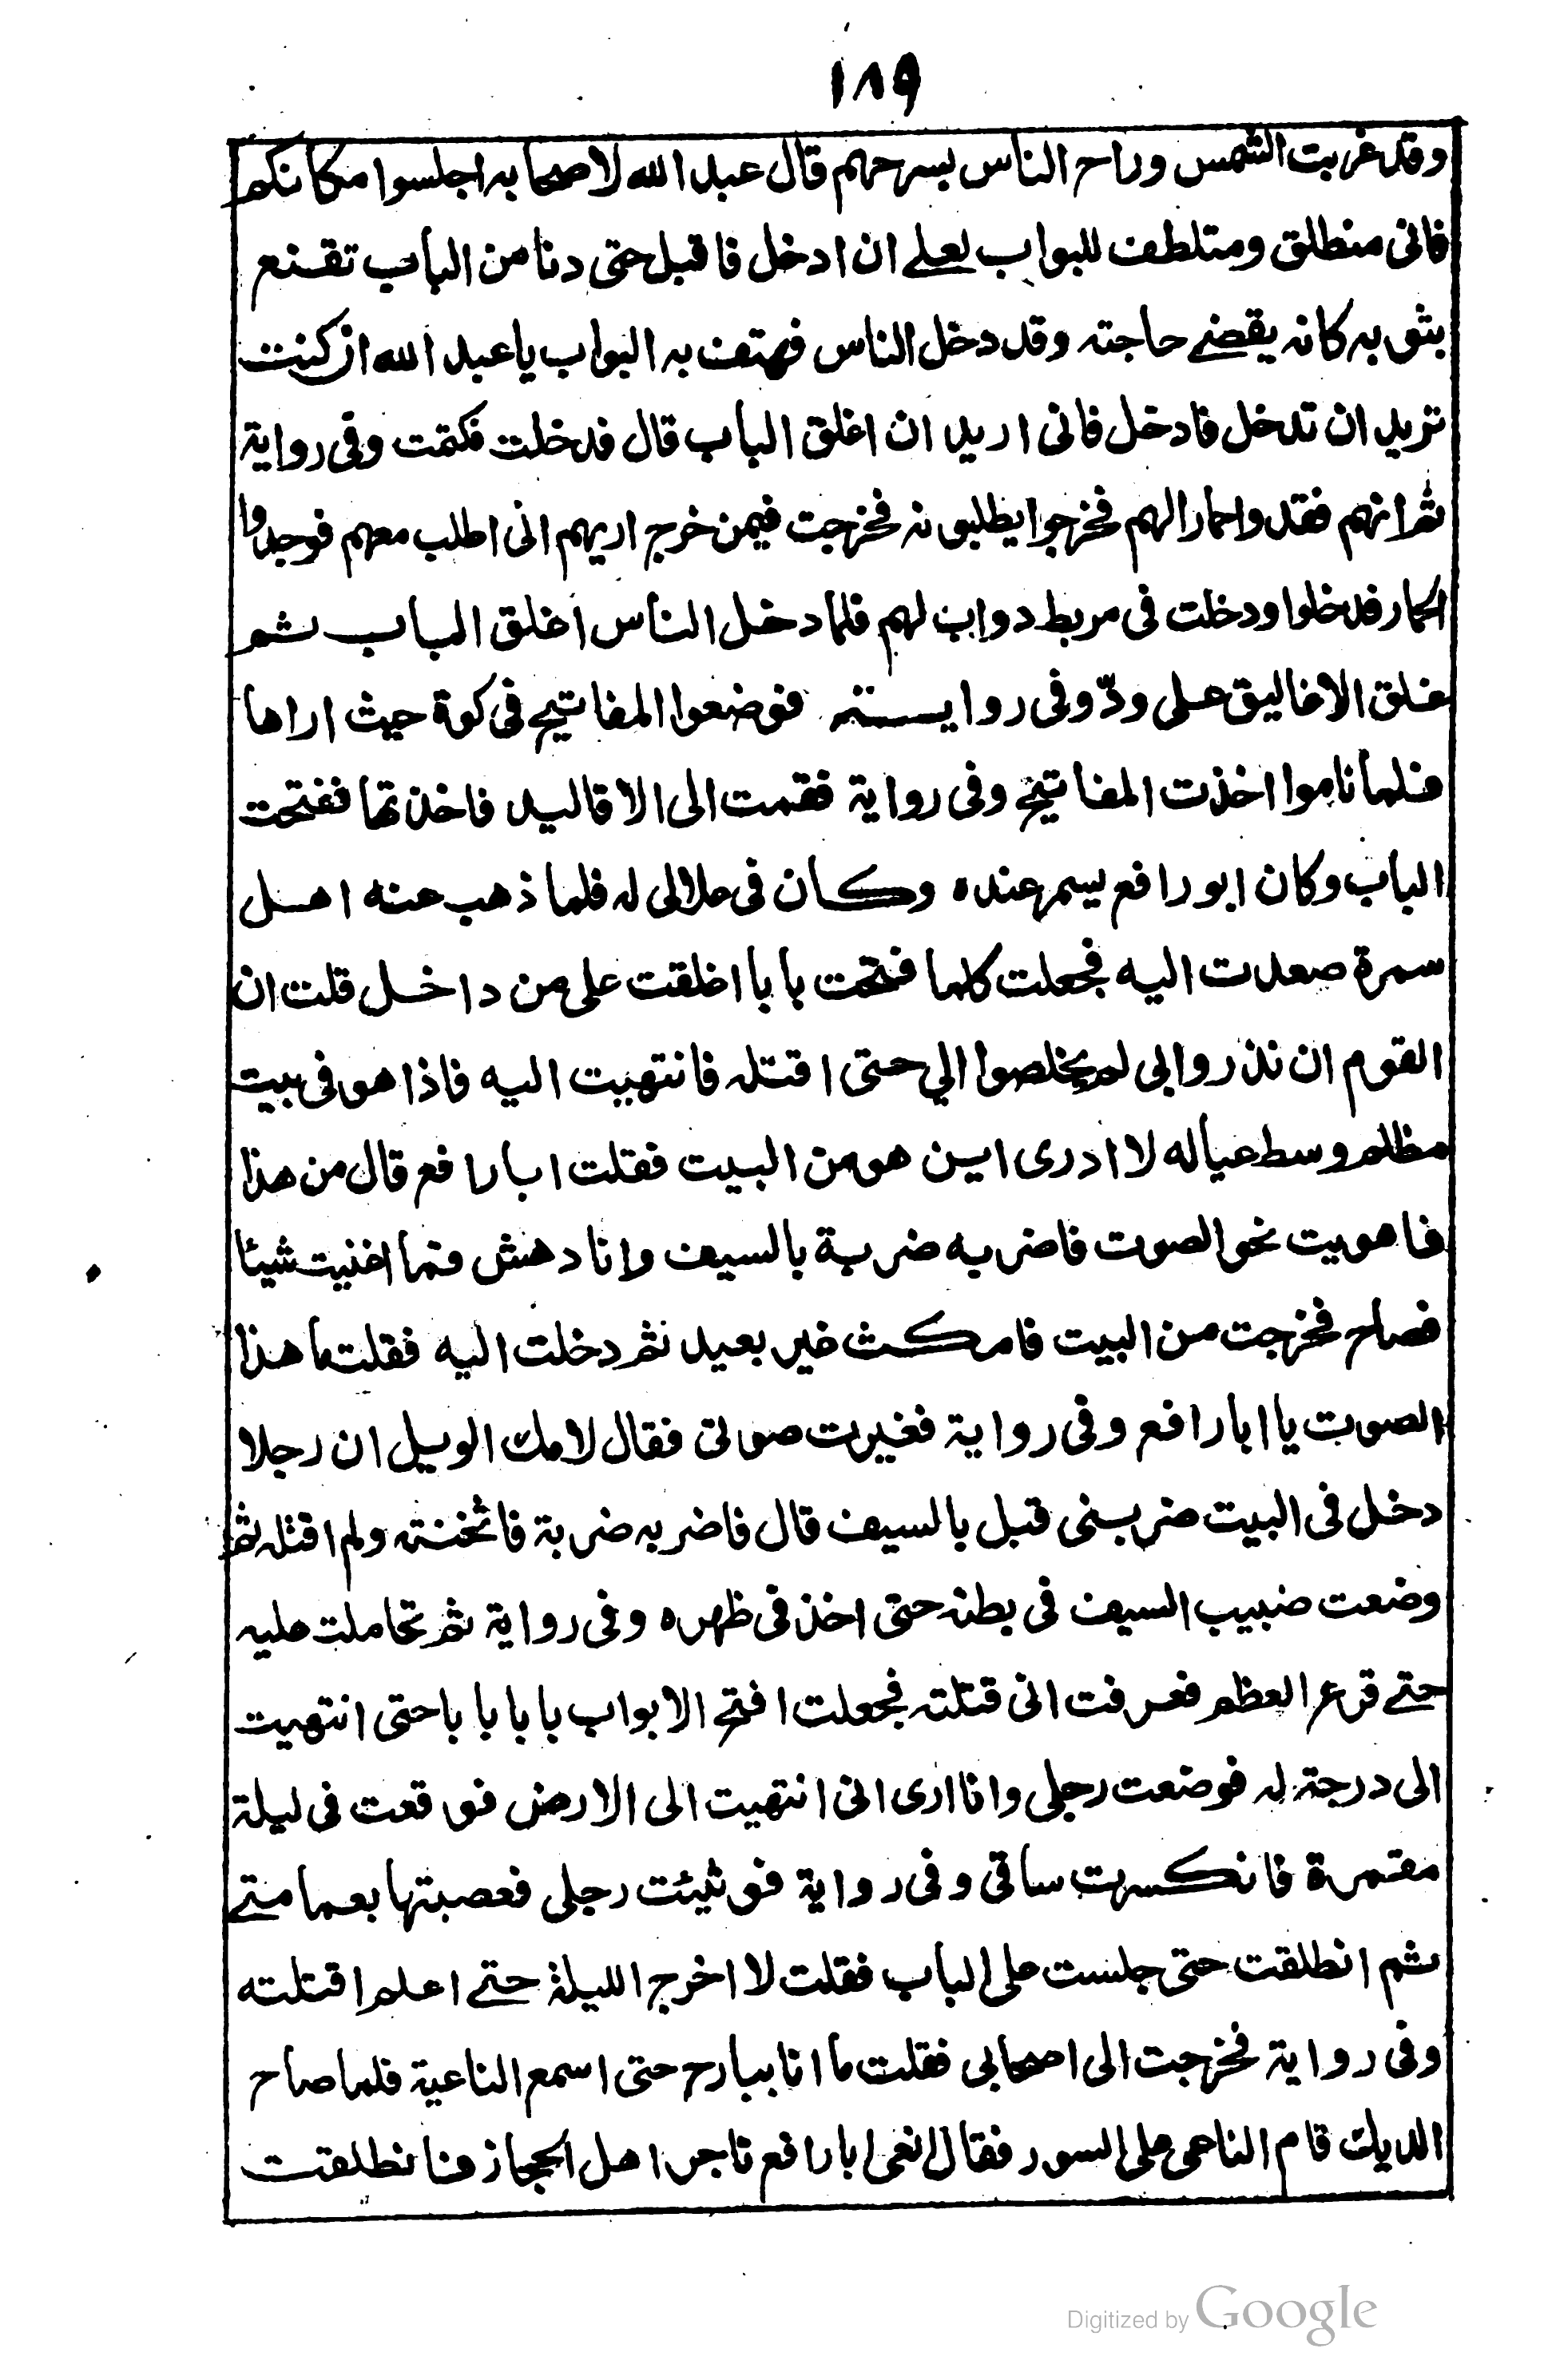 ١٨٩
وقد غربت الشمس وراح الناس بسرحهم قال عبد الله لاصحابه اجلسوا مكانكم
فانى منطلق ومتلطف للبواب لعلے ان ادخل فاقبل حتى دنا من الباب تقنع
بثوبه كانه يقضے حاجته وقد دخل الناس فهتف به البواب يا عبد الله ان كنت
تريد ان تدخل فادخل فانى اريد ان اغلق الباب قال فدخلت فكمنت وفى رواية
ثم انهم فقدوا حمارا لهم فخرجوا يطلبونه فخرجت فيمن خرج اريهم انى اطلب معهم فوجدوا
الحمار فدخلوا ودخلت فى مربط دواب لهم فلما دخل الناس اغلق الباب ثم
غلق الاغاليق على ودّ وفى رواية فوضعوا المفاتيح فى كوة حيث اراها
فلما ناموا اخذت المفاتيح وفى رواية فقمت الى الاقاليد فاخذتها ففتحت
الباب وكان ابو رافع يسمر عنده وكان فى علالى له فلما ذهب عنه اهل
سمرة صعدت اليه فجعلت كلما فتحت بابا اغلقت على من داخل قلت ان
القوم ان نذروا بى لم يخلصوا الي حتى اقتله فانتهيت اليه فاذا هو فى بيت
مظلم وسط عياله لا ادرى اين هو من البيت فقلت ابا رافع قال من هذا
فاهويت نحو الصوت فاضربه ضربة بالسيف وانا دهش فما اغنيت شيئا
فصاح فخرجت من البيت فامكث غير بعيد ثم دخلت اليه فقلت ما هذا
الصوت يا ابا رافع وفى رواية فغيرت صوتى فقال لامك الويل ان رجلا
دخل فى البيت ضربنى قبل بالسيف قال فاضربه ضربة فاثخنته ولم اقتله ثم
وضعت ضبيب السيف فى بطنه حتى اخذ فى ظهره وفى رواية ثم تحاملت عليه
حتے قرع العظم فعرفت انى قتلته فجعلت افتح الابواب بابا بابا حتى انتهيت
الى درجة له فوضعت رجلى وانا ارى انى انتهيت الى الارض فوقعت فى ليلة
مقمرة فانكسرت ساقى وفى رواية فوثيئت رجلى فعصبتها بعمامتے
ثم انطلقت حتى جلست على الباب فقلت لا اخرج الليلة حتے اعلم اقتلته
وفى رواية فخرجت الى اصحابى فقلت ما انا ببارح حتى اسمع الناعية فلما صاح
الديك قام الناعى على السور فقال انعى ابا رافع تاجر اهل الحجاز فانطلقت
Digitized by Google